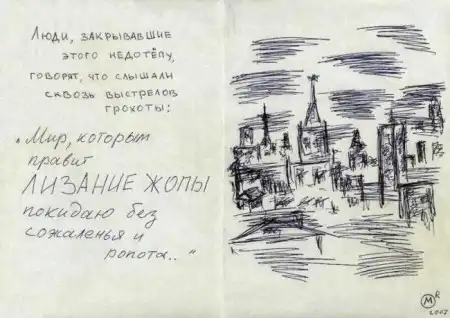 Люди, закрывавшие
этого недотёпу,
говорят, что слышали
сквозь выстрелов
грохоты:
„Мир, которым
правит
ЛИЗАНИЕ ЖОПЫ
покидаю без
сожаленья и
ропота.."
MR
2007